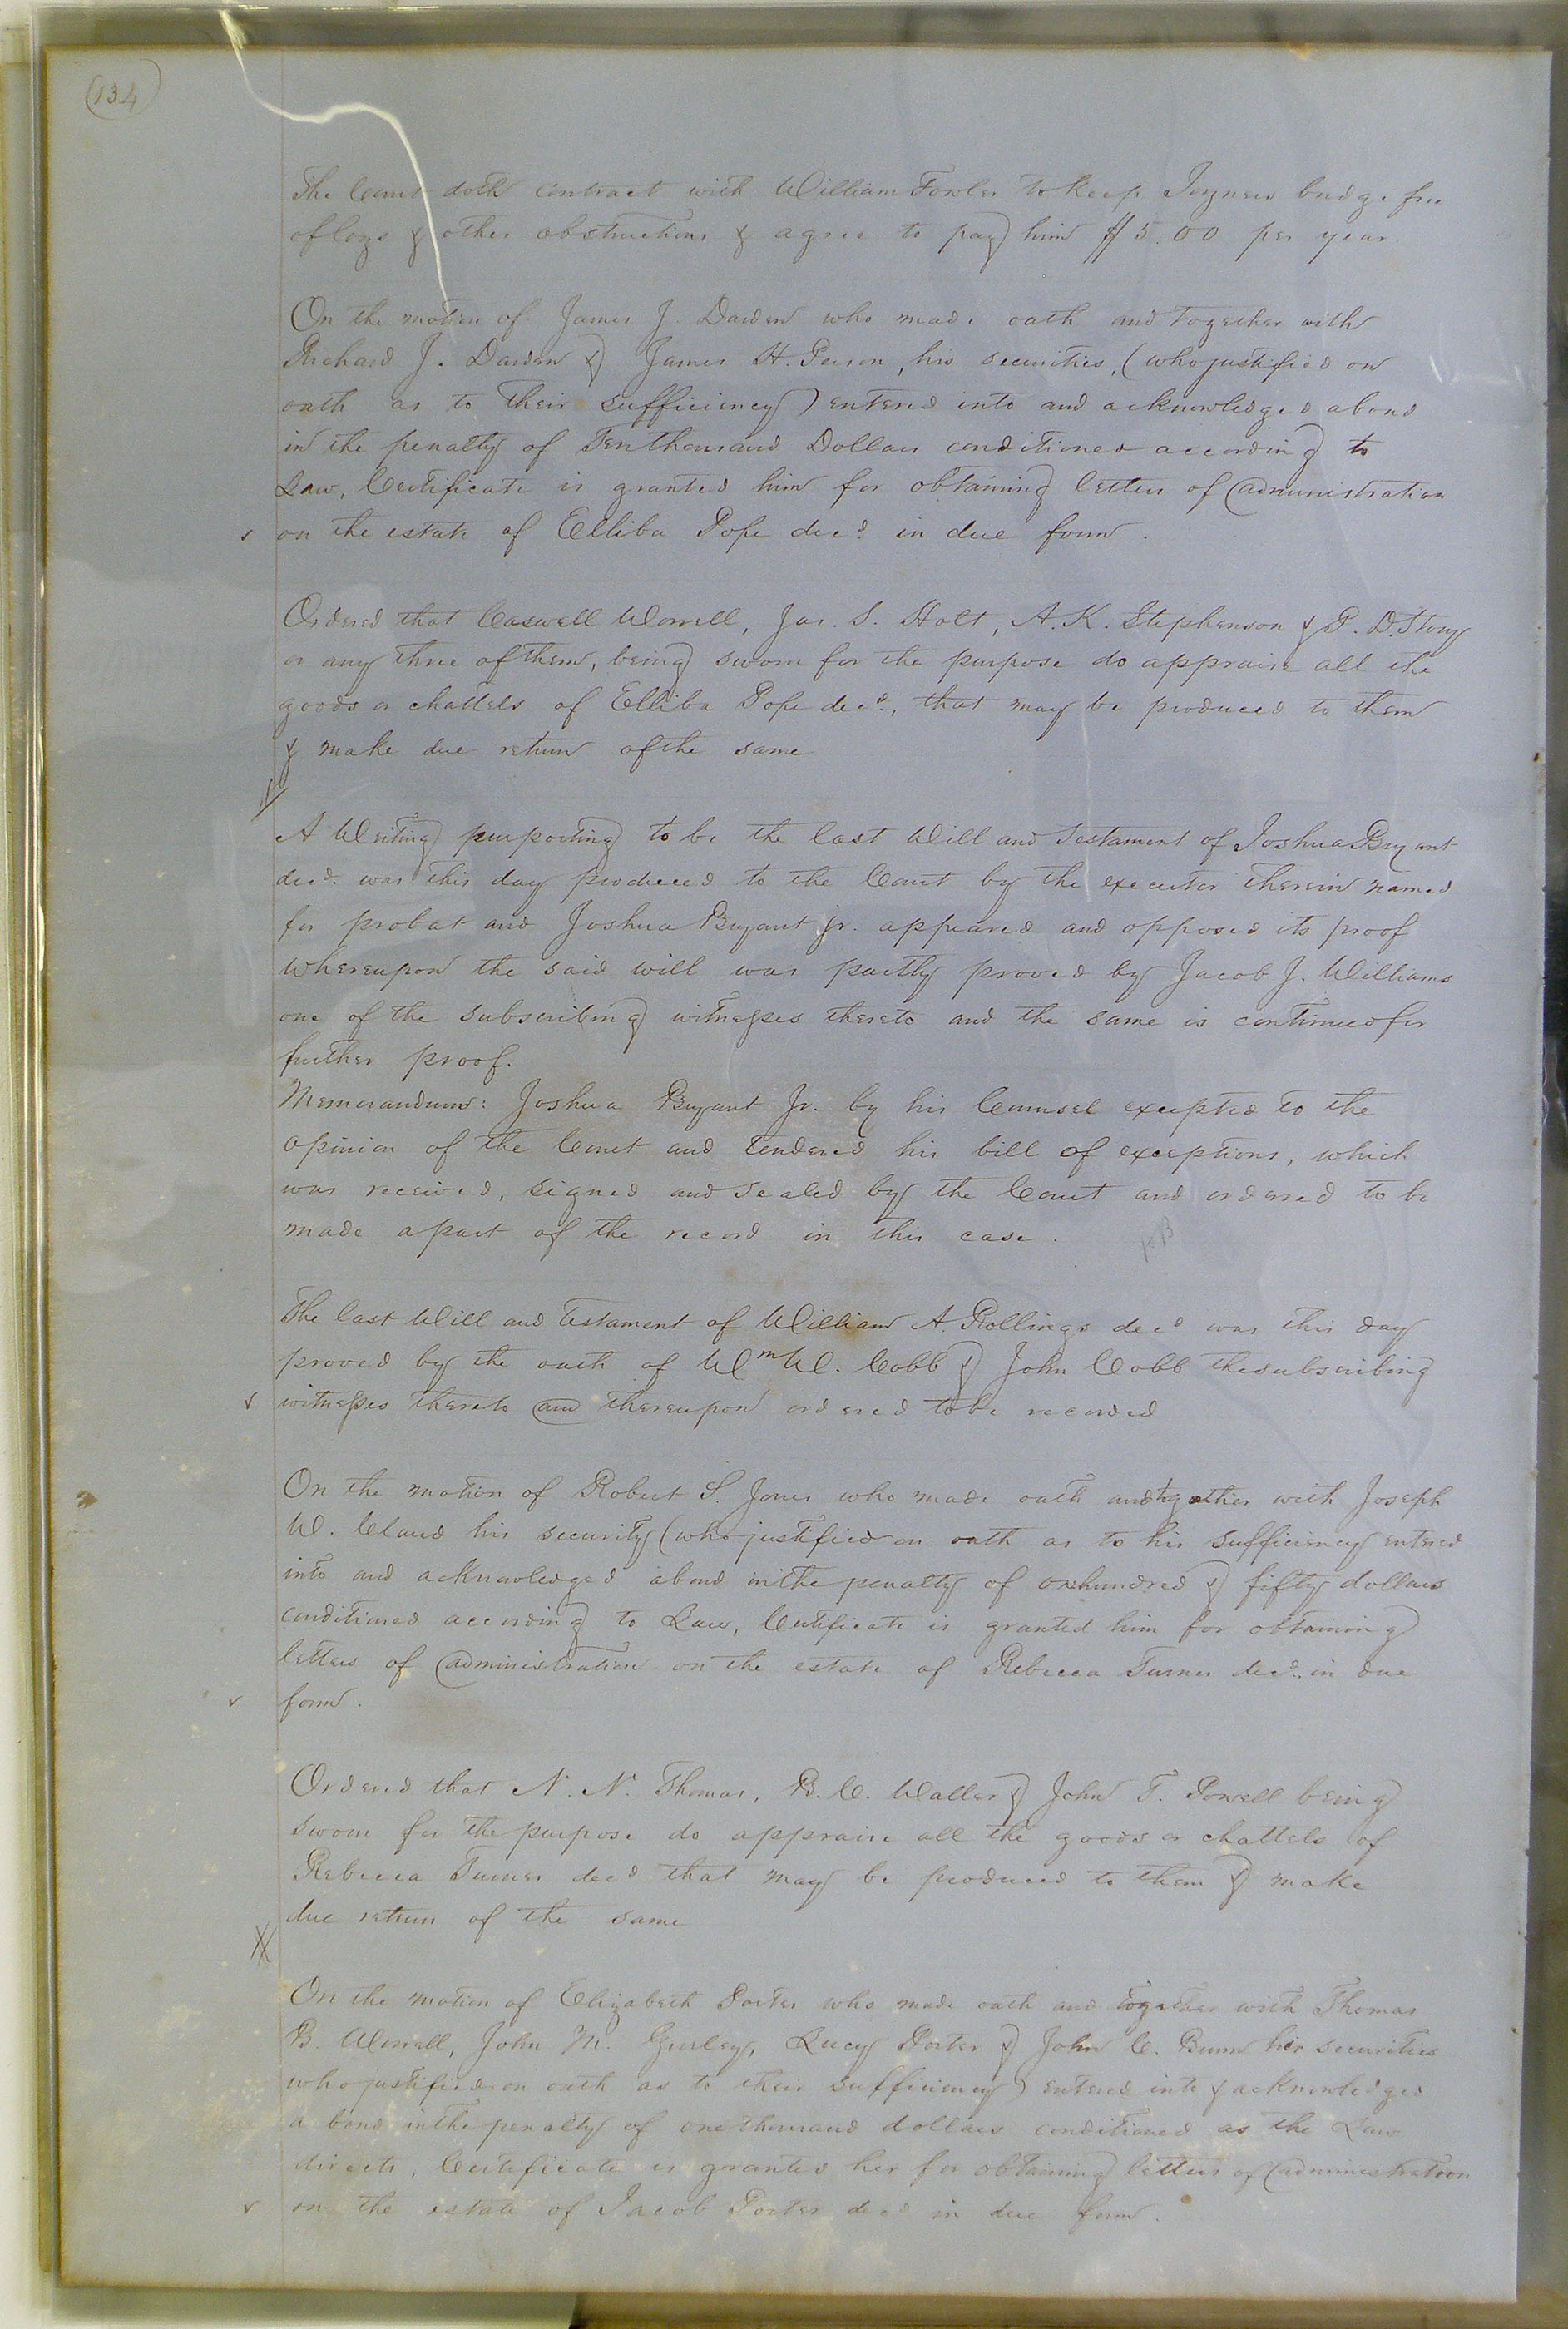 (134)
The Court doth contract with William Fowler to keep Joyners bridge free
of logs & other obstructions & agree to pay him $5.00 per year
On the motion of James J. Darden who made oath and together with
Richard J. Darden & James H. Person, his securities, (who justified on
oath as to their sufficiency) entered into and acknowledged a bond
in the penalty of Ten thousand Dollars conditioned according to
Law, Certificate is granted him for obtaining letters of administration
on the estate of Elliba Pope decd. in due form.
Ordered that Caswell Worrell, Jas. S. Holt, A. K. Stephenson & P. D. Story
or any three of them, being sworn for the purpose do appraise all the
goods or chattels of Elliba Pope decd., that may be produced to them
& make due return of the same
A Writing purporting to be the last Will and Testament of Joshua Bryant
decd. was this day produced to the Court by the executor therein named
for probat and Joshua Bryant jr. appeared and opposed its proof
whereupon the said will was partly proved by Jacob J. Williams
one of the subscribing witnesses thereto and the same is continued for
further proof.
Memorandum: Joshua Bryant Jr. by his Counsel excepted to the
opinion of the Court and tendered his bill of exceptions, which
was received, signed and sealed by the Court and ordered to be
made a part of the record in this case.
The last Will and testament of William A. Rollings decd was this day
proved by the oath of Wm W. Cobb & John Cobb the subscribing
witnesses thereto and thereupon ordered to be recorded
On the motion of Robert S. Jones who made oath and together with Joseph
W. Claud his security (who justified on oath as to his sufficiency entered
into and acknowledged a bond in the penalty of one hundred & fifty dollars
conditioned according to Law, Certificate is granted him for obtaining
letters of administration on the estate of Rebecca Turner decd. in due
form.
Ordered that N. N. Thomas, B. C. Waller & John T. Powell being
sworn for the purpose do appraise all the goods or chattels of
Rebecca Turner decd that may be produced to them & make
due return of the same
On the motion of Elizabeth Porter who made oath and together with Thomas
B. Worrell, John M. Gurley, Lucy Porter & John C. Bunn her securities
who justified on oath as to their sufficiency) entered into & acknowledged
a bond in the penalty of one thousand dollars conditioned as the Law
directs, Certificate is granted her for obtaining letters of administration
on the estate of Jacob Porter decd in due form.